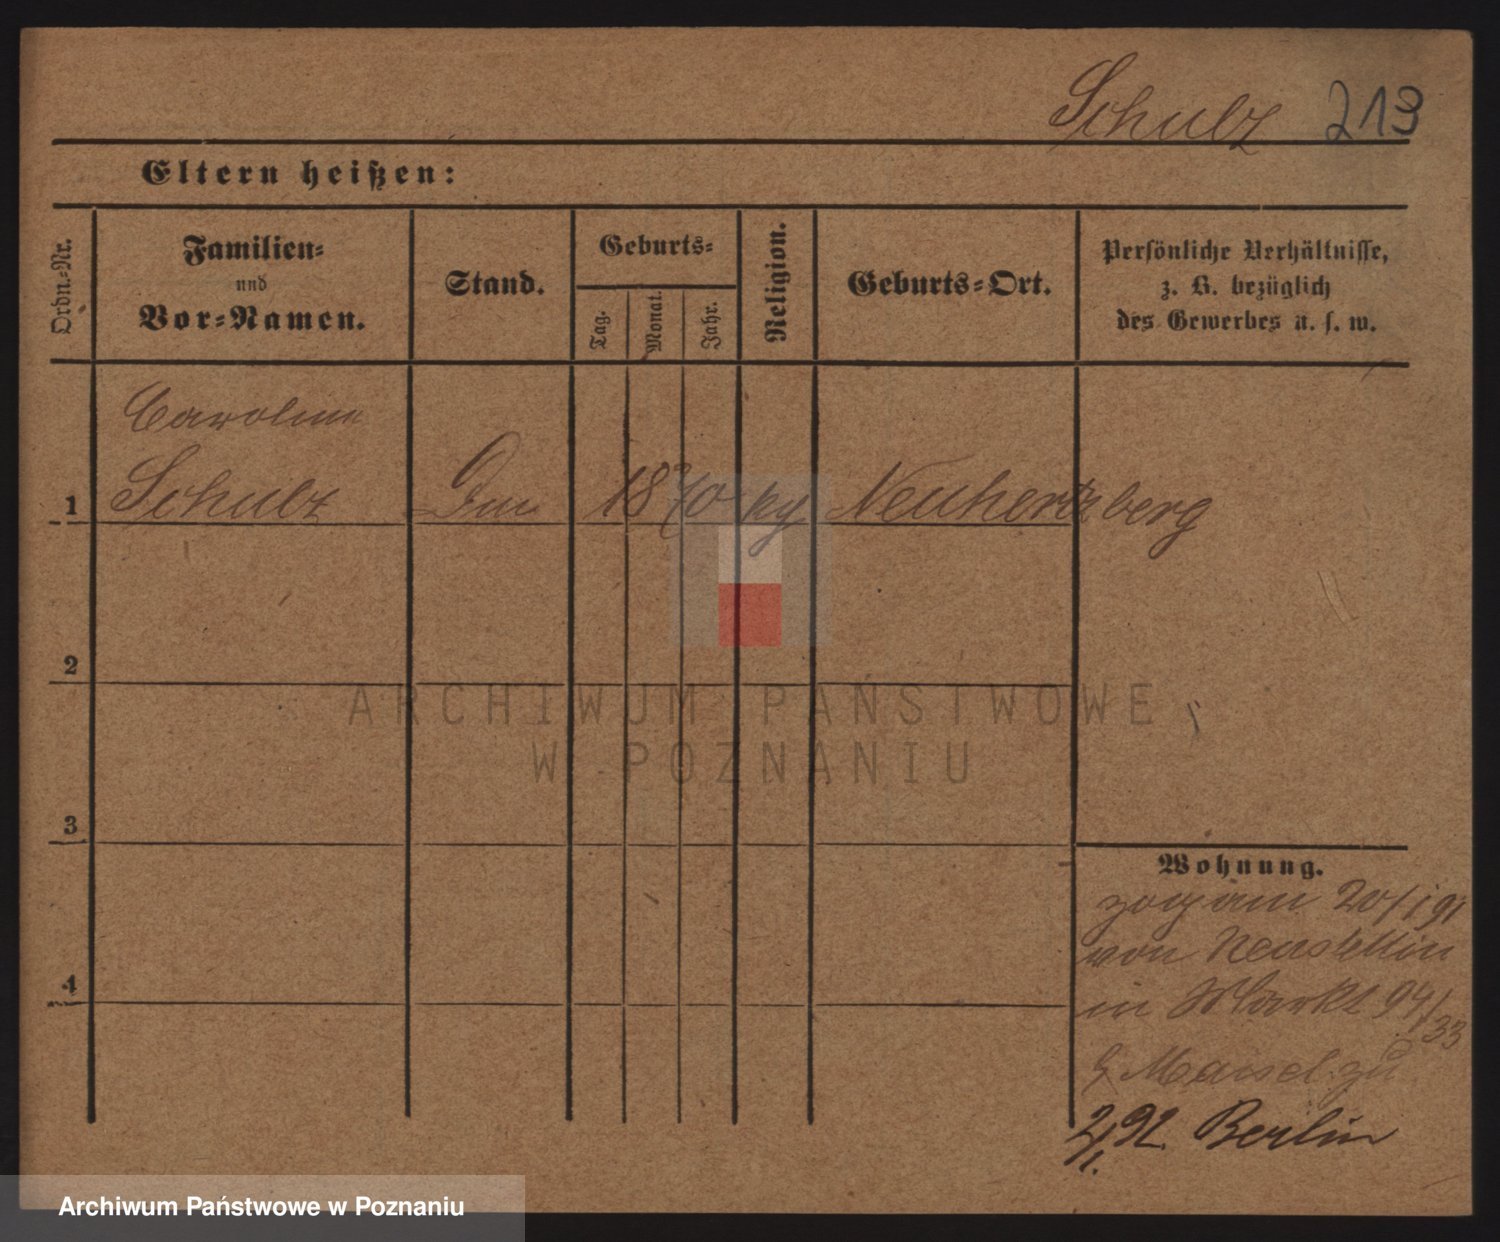 Schulz 213
Eltern heißen:
Ordn.-Nr.
Familien-
und
Vor-Namen.
Stand.
Geburts-
Tag.
Monat.
Jahr.
Religion.
Geburts-Ort.
Persönliche Verhältnisse,
z. B. bezüglich
des Gewerbes u. s. w.
Caroline
1 Schulz 1870 Neuhertzberg
2
3
4
Wohnung.
zog am 20/1 91
von Neustettin
in Markt 94/
33
b Maisel zu
2/1. 92. Berlin
ARCHIWUM PAŃSTWOWE
W POZNANIU
Archiwum Państwowe w Poznaniu